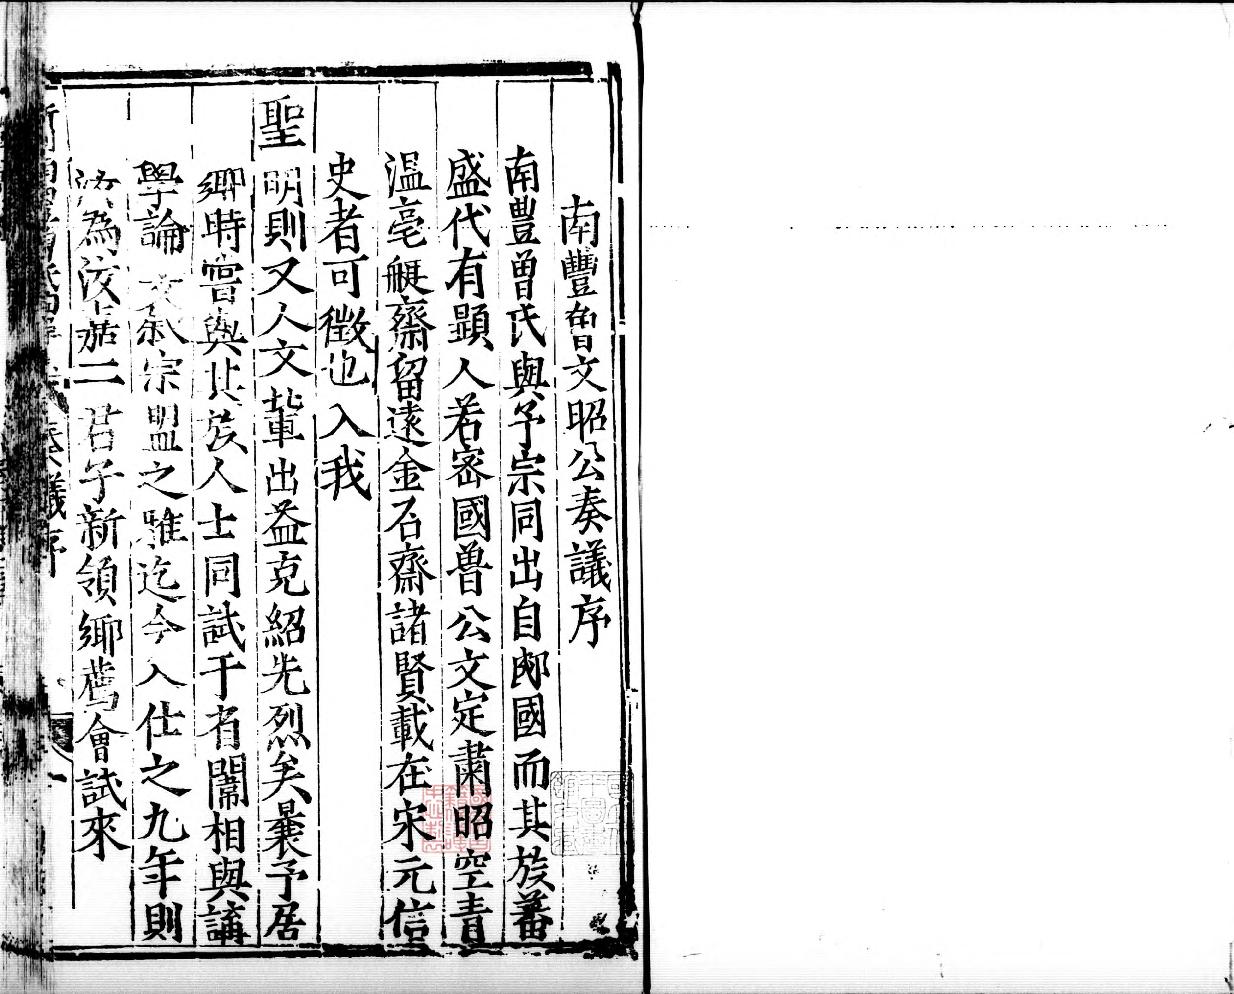 南豐曾文昭公奏議序
南豐曾氏與予宗同出自郕國而其族蕃
盛代有顯人若密國曾公文定肅昭空青
温亳艇齋留遠金石齋諸賢載在宋元信
史者可徵也入我
聖明則又人文輩出益克紹先烈矣曩予居
鄉時嘗與其族人士同試于省闈相與講
學論文氣宗盟之雅迄今入仕之九年則
為汝二君子新領鄉薦會試來